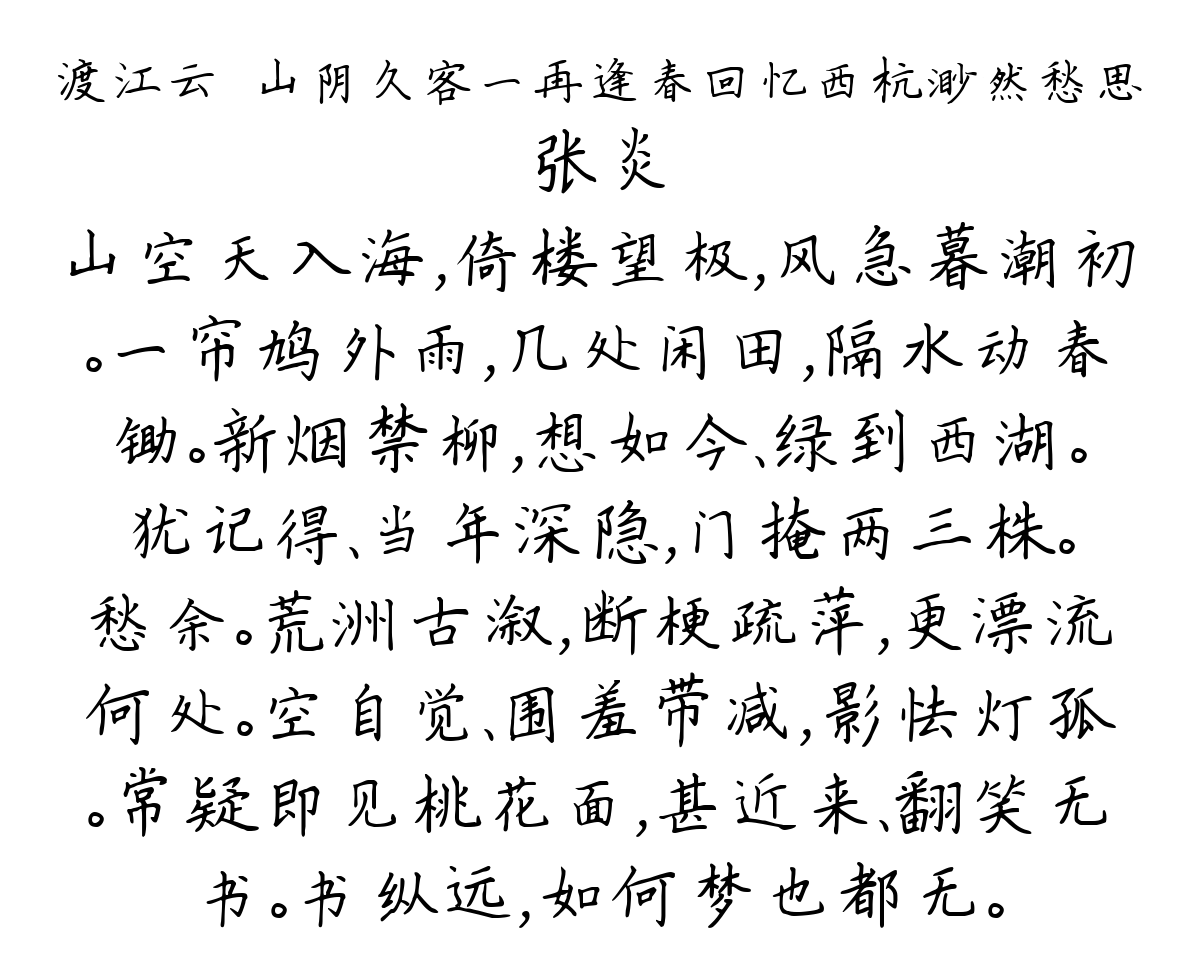 渡江云 山阴久客一再逢春回忆西杭渺然愁思
张炎
山空天入海,倚楼望极,风急暮潮初
。一帘鸠外雨,几处闲田,隔水动春
锄。新烟禁柳,想如今、绿到西湖。
犹记得、当年深隐,门掩两三株。
愁余。荒洲古溆,断梗疏萍,更漂流
何处。空自觉、围羞带减,影怯灯孤
。常疑即见桃花面,甚近来、翻笑无
书。书纵远,如何梦也都无。